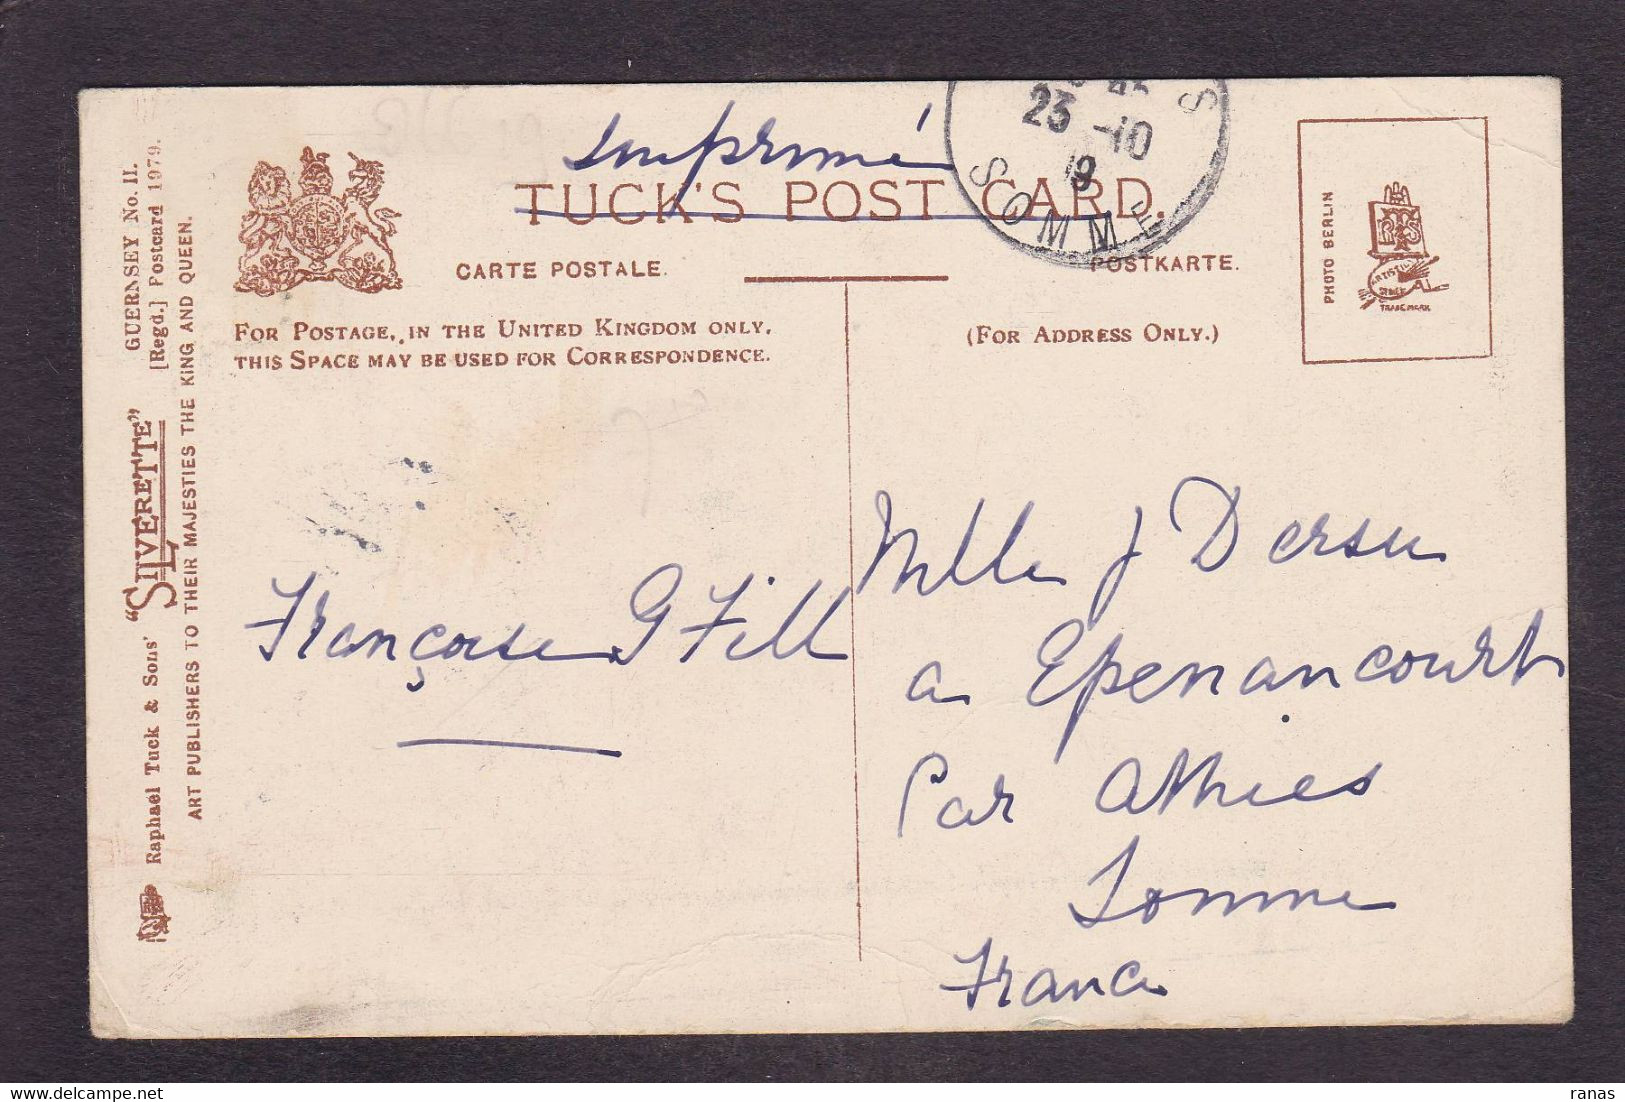 Imprimé
TUCK'S POST CARD.
CARTE POSTALE.
POSTKARTE.
FOR POSTAGE, IN THE UNITED KINGDOM ONLY,
THIS SPACE MAY BE USED FOR CORRESPONDENCE.
(FOR ADDRESS ONLY.)
23 -10
19
SOMME
S
PHOTO BERLIN
ARTISTIC
TRADE MARK
Raphael Tuck & Sons' "SILVERETTE" GUERNSEY No. II.
[Regd.] Postcard 1979.
ART PUBLISHERS TO THEIR MAJESTIES THE KING AND QUEEN.
Françoise G Fill
Mlle J Dersu
a Epenancourt
Par Athies
Somme
France
ranas